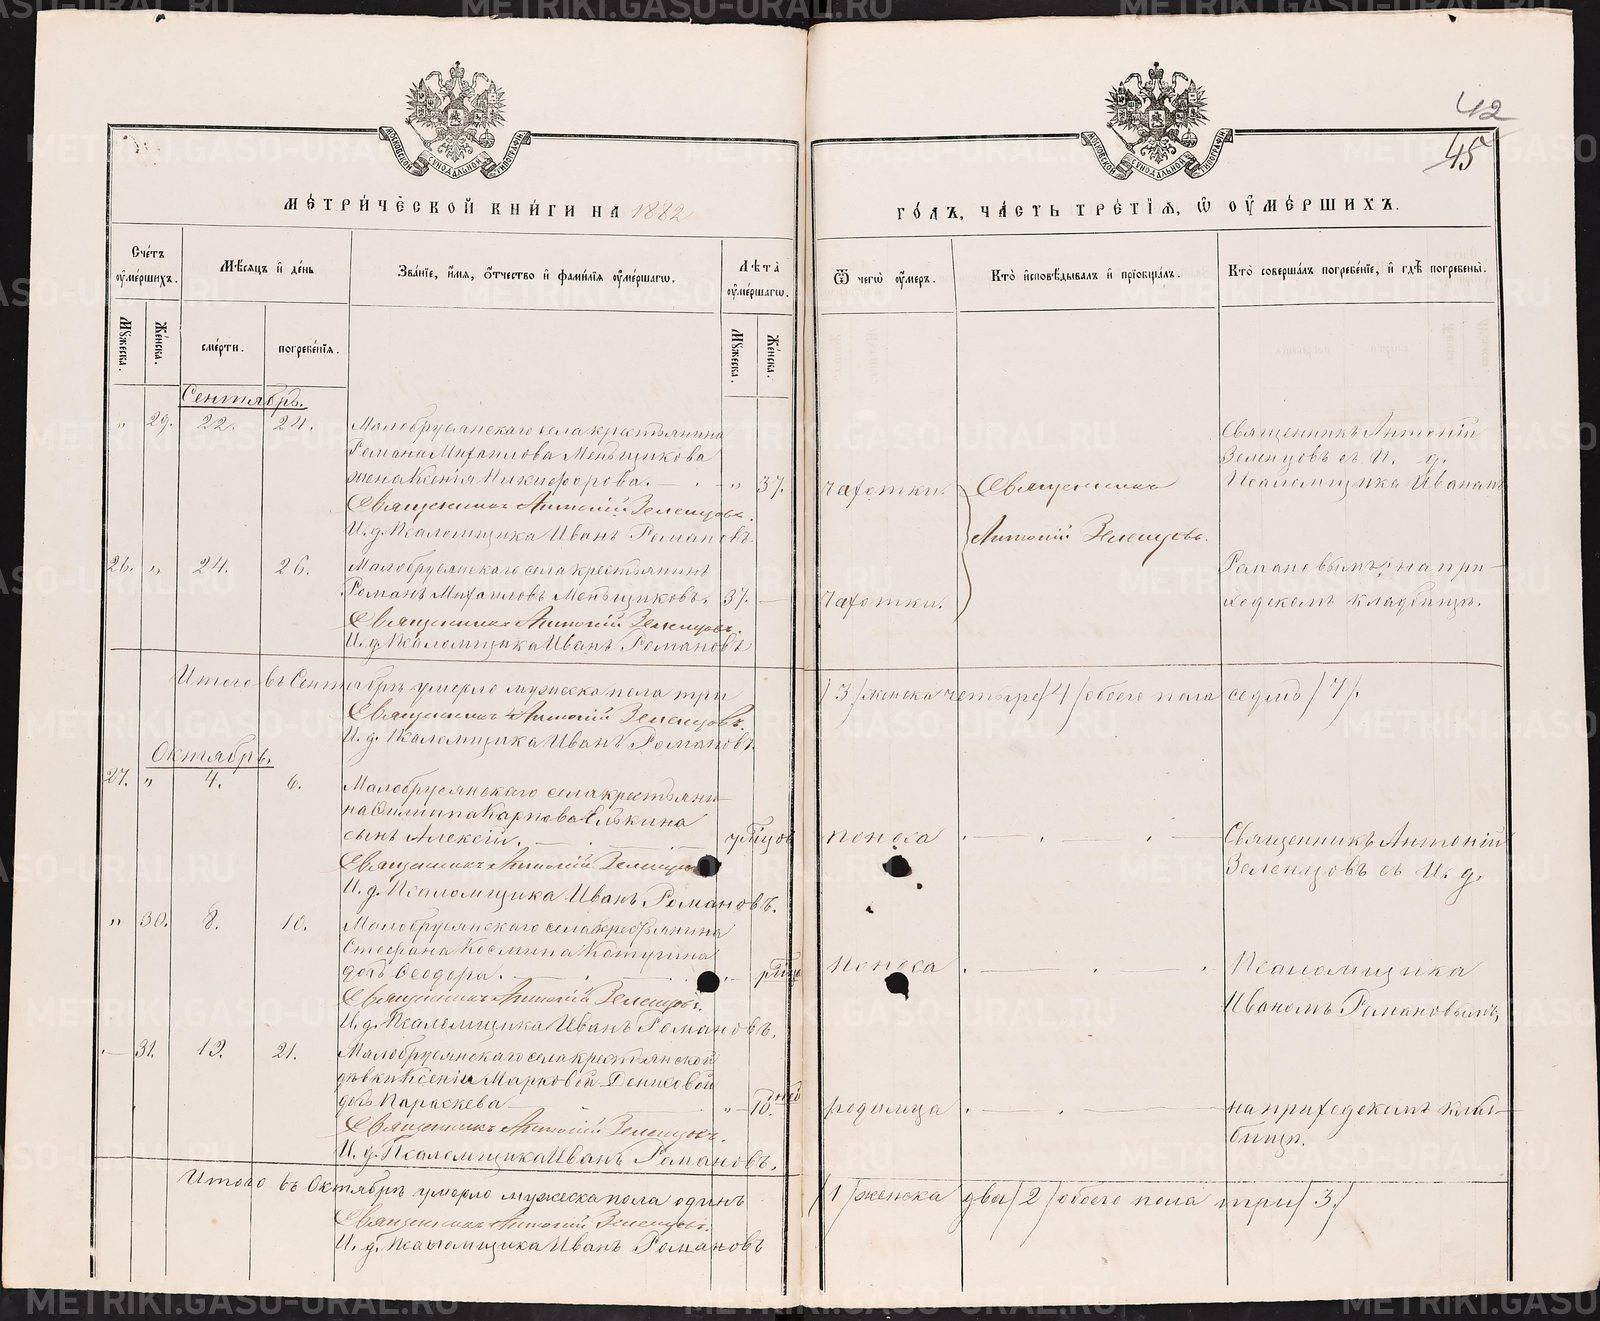 42
45
МОСКОВСКОЙ СѴНОДАЛЬНОЙ ТИПОГРАФІИ
МОСКОВСКОЙ СѴНОДАЛЬНОЙ ТИПОГРАФІИ
МЕТРИЧЕСКОЙ КНИГИ НА 1882
ГОДЪ, ЧАСТЬ ТРЕТІЯ, Ѿ ОУМЕРШИХЪ.
Счетъ оумершихъ.
Мѣсяцъ и день
Званіе, имя, отчество и фамилія оумершагѡ.
Лѣта оумершагѡ.
Ѿ чегѡ оумеръ.
Кто исповѣдывалъ и пріобщалъ.
Кто совершалъ погребеніе, и гдѣ погребены.
Мꙋжеска.
Женска.
смерти.
погребенія.
Мꙋжеска.
Женска.
Сентябрь.
" 29. 22. 24. Малобрусянскаго села крестьянина
Романа Михаилова Меньщикова
жена Ксенія Никифорова. — " 37. чахотки. Священникъ
Священникъ Антоній Зеленцовъ.
И. д. Псаломщика Иванъ Романовъ.
Антоній Зеленцовъ.
Священникъ Антоній
Зеленцовъ съ И. д.
Псаломщика Иваномъ
26. " 24. 26. Малобрусянскаго села крестьянинъ
Романъ Михаиловъ Меньщиковъ. 37. — чахотки.
Священникъ Антоній Зеленцовъ.
И. д. Псаломщика Иванъ Романовъ
Романовымъ; на при-
ходскомъ кладбищѣ.
Итого въ Сентябрѣ умерло мужеска пола три /3/ женска четыре /4/ обоего пола седмь /7/.
Священникъ Антоній Зеленцовъ.
И. д. Псаломщика Иванъ Романовъ.
Октябрь.
27. " 4. 6. Малобрусянскаго села крестьяни-
на Филиппа Карпова Елькина
сынъ Алексій. — поноса
Священникъ Антоній Зеленцовъ
И. д. Псаломщика Иванъ Романовъ.
Священникъ Антоній
Зеленцовъ съ И. д.
" 30. 8. 10. Малобрусянскаго села крестьянина
Стефана Космина Котугина
дочь Ѳеодора. — поноса
Священникъ Антоній Зеленцовъ.
И. д. Псаломщика Иванъ Романовъ.
Псаломщика
Иваномъ Романовымъ,
— 31. 19. 21. Малобрусянскаго села крестьянской
дѣвки Ксеніи Марковой Денисовой
дочь Параскева — " 10. дней родимца
Священникъ Антоній Зеленцовъ.
И. д. Псаломщика Иванъ Романовъ.
на приходскомъ клад-
бищѣ.
Итого въ Октябрѣ умерло мужеска пола одинъ /1/ женска два /2/ обоего пола три /3/
Священникъ Антоній Зеленцовъ.
И. д. Псаломщика Иванъ Романовъ
METRIKI.GASO-URAL.RU